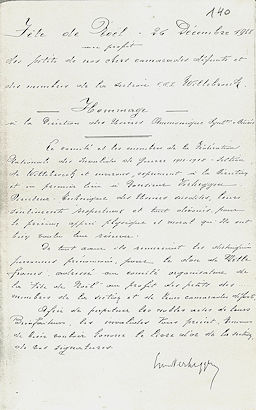 140
Fête de Noël - 26 Décembre 19
au profit
des petits de nos chers camarades défunts et
des membres de la section de Willebroek.
Hommage
à la Direction des Usines
Le comité et les membres de la Fédération
Nationale des Invalides de Guerre section
de Willebroek et environs, à la Direction
et en premier lieu à Monsieur Verheggen
Directeur Technique des Usines susdites, leurs
sentiments respectueux et tout dévoués pour
le précieux appui physique et moral qu'ils ont
bien voulu leur
De tout cœur ils remercient les
personnes pour le don de Mille
francs, adressé au comité organisateur de
la Fête de Noël au profit des petits des
membres de la section et de leurs camarades défunts.
Afin de perpétuer les nobles actes de leurs
Bienfaiteurs, les invalides Vous prient, Messieurs
de bien vouloir honorer le Livre d'or de la section
de vos signatures.